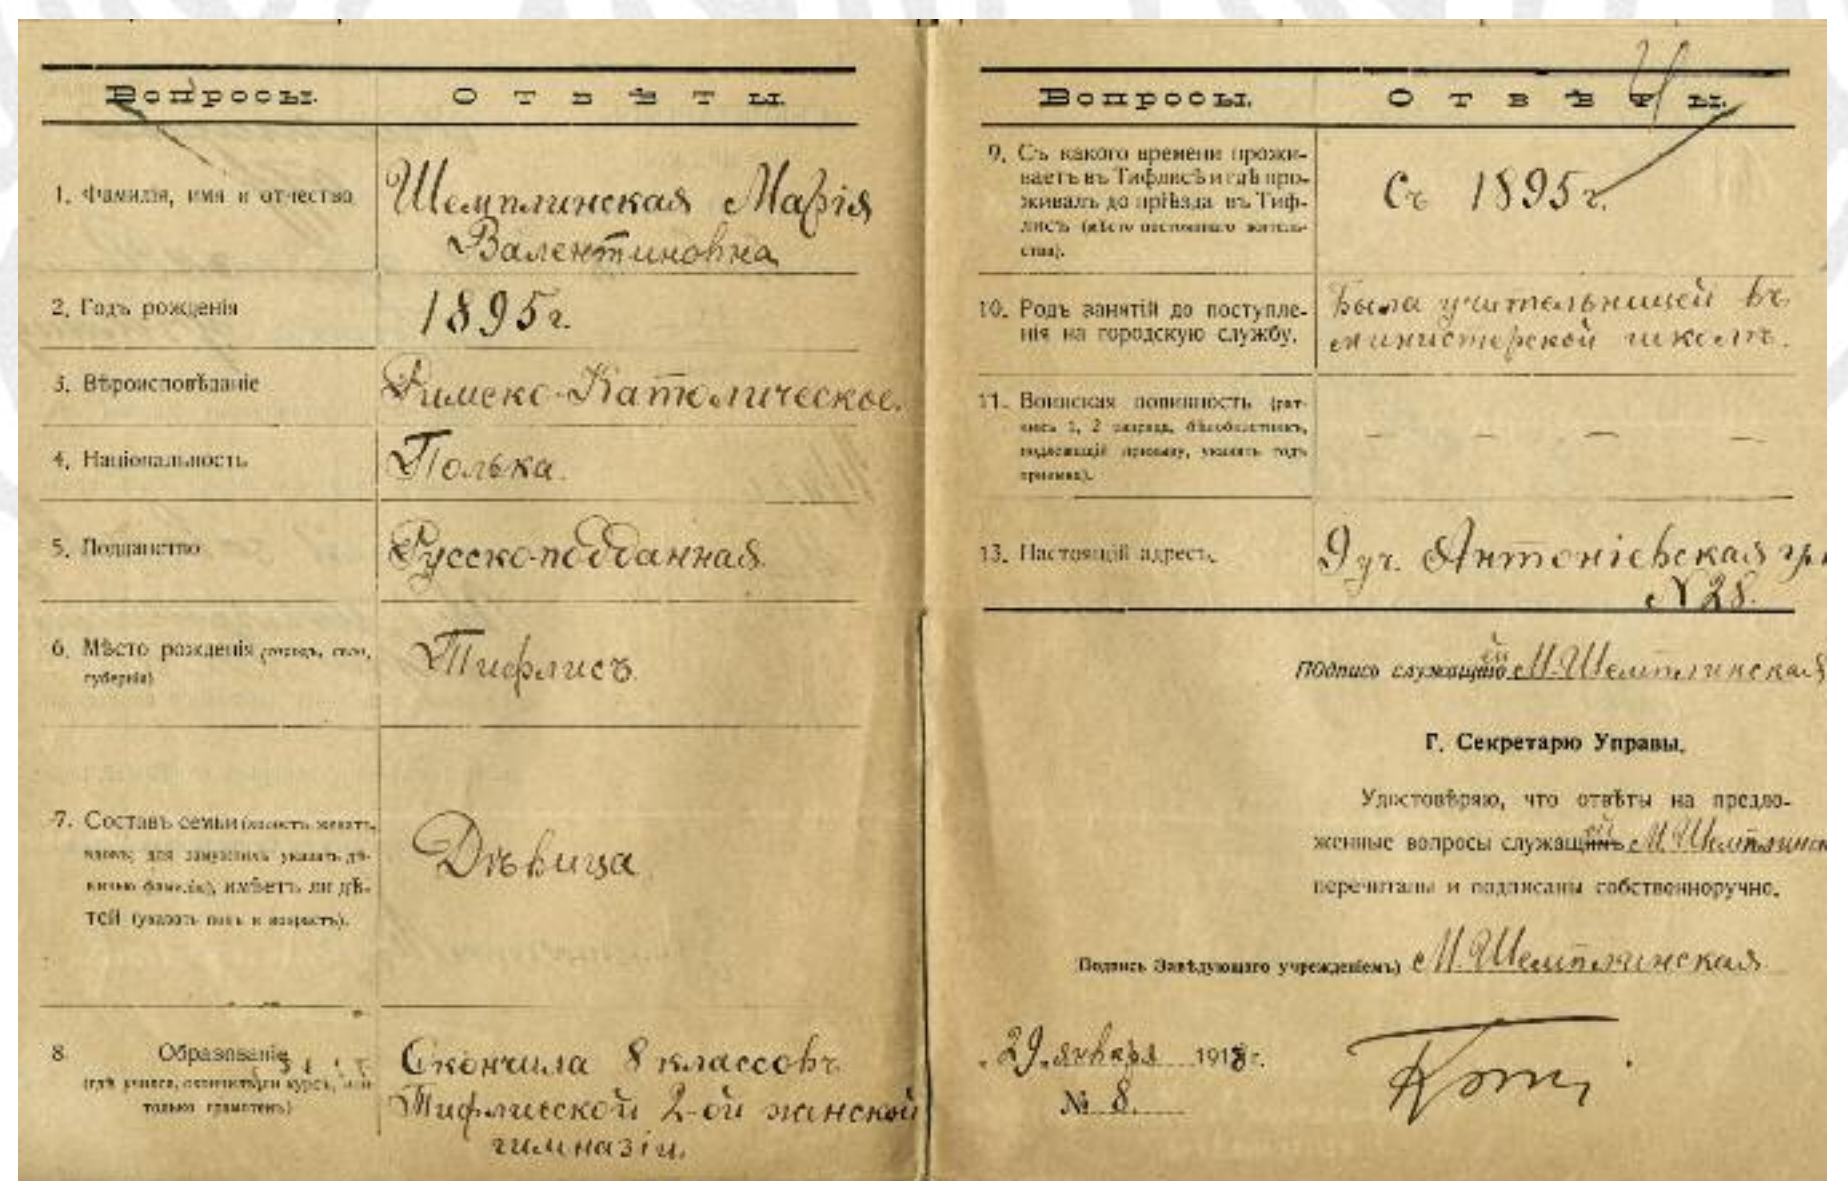 Вопросы. Отвѣты.
1. Фамилія, имя и отчество
Шемплинская Марія
Валентиновна
2. Годъ рожденія
1895 г.
3. Вѣроисповѣданіе
Римско-Католическое.
4. Національность
Полька.
5. Подданство
Русско-подданная
6. Мѣсто рожденія (городъ, село,
губернія)
Тифлисъ.
7. Составъ семьи (холостъ, женатъ,
вдовъ; для замужнихъ указать дѣ-
вичью фамилію), имѣетъ ли дѣ-
тей (указать полъ и возрастъ).
Дѣвица
8. Образованіе
(гдѣ учился, окончилъ ли курсъ, или
только грамотенъ)
Окончила 8 классовъ
Тифлисской 2-ой женской
гимназіи.
Вопросы. Отвѣты.
9. Съ какого времени прожи-
ваетъ въ Тифлисѣ и гдѣ про-
живалъ до пріѣзда въ Тиф-
лисъ (мѣсто постояннаго житель-
ства).
Съ 1895 г.
10. Родъ занятій до поступле-
нія на городскую службу.
Была учительницей въ
министерской школѣ.
11. Воинская повинность (рат-
никъ 1, 2 разряда, бѣлобилетникъ,
подлежащій призыву, указать годъ
призыва).
— — — —
13. Настоящій адресъ.
9 уч. Антоніевская ул.
№ 28.
Подпись служащаго ей М. Шемплинская
Г. Секретарю Управы.
Удостовѣряю, что отвѣты на предло-
женные вопросы служащимъ ей М. Шемплинск
перечитаны и подписаны собственноручно.
Подпись Завѣдующаго учрежденіемъ) М. Шемплинская
„29„ января 1918 г.
№ 8.